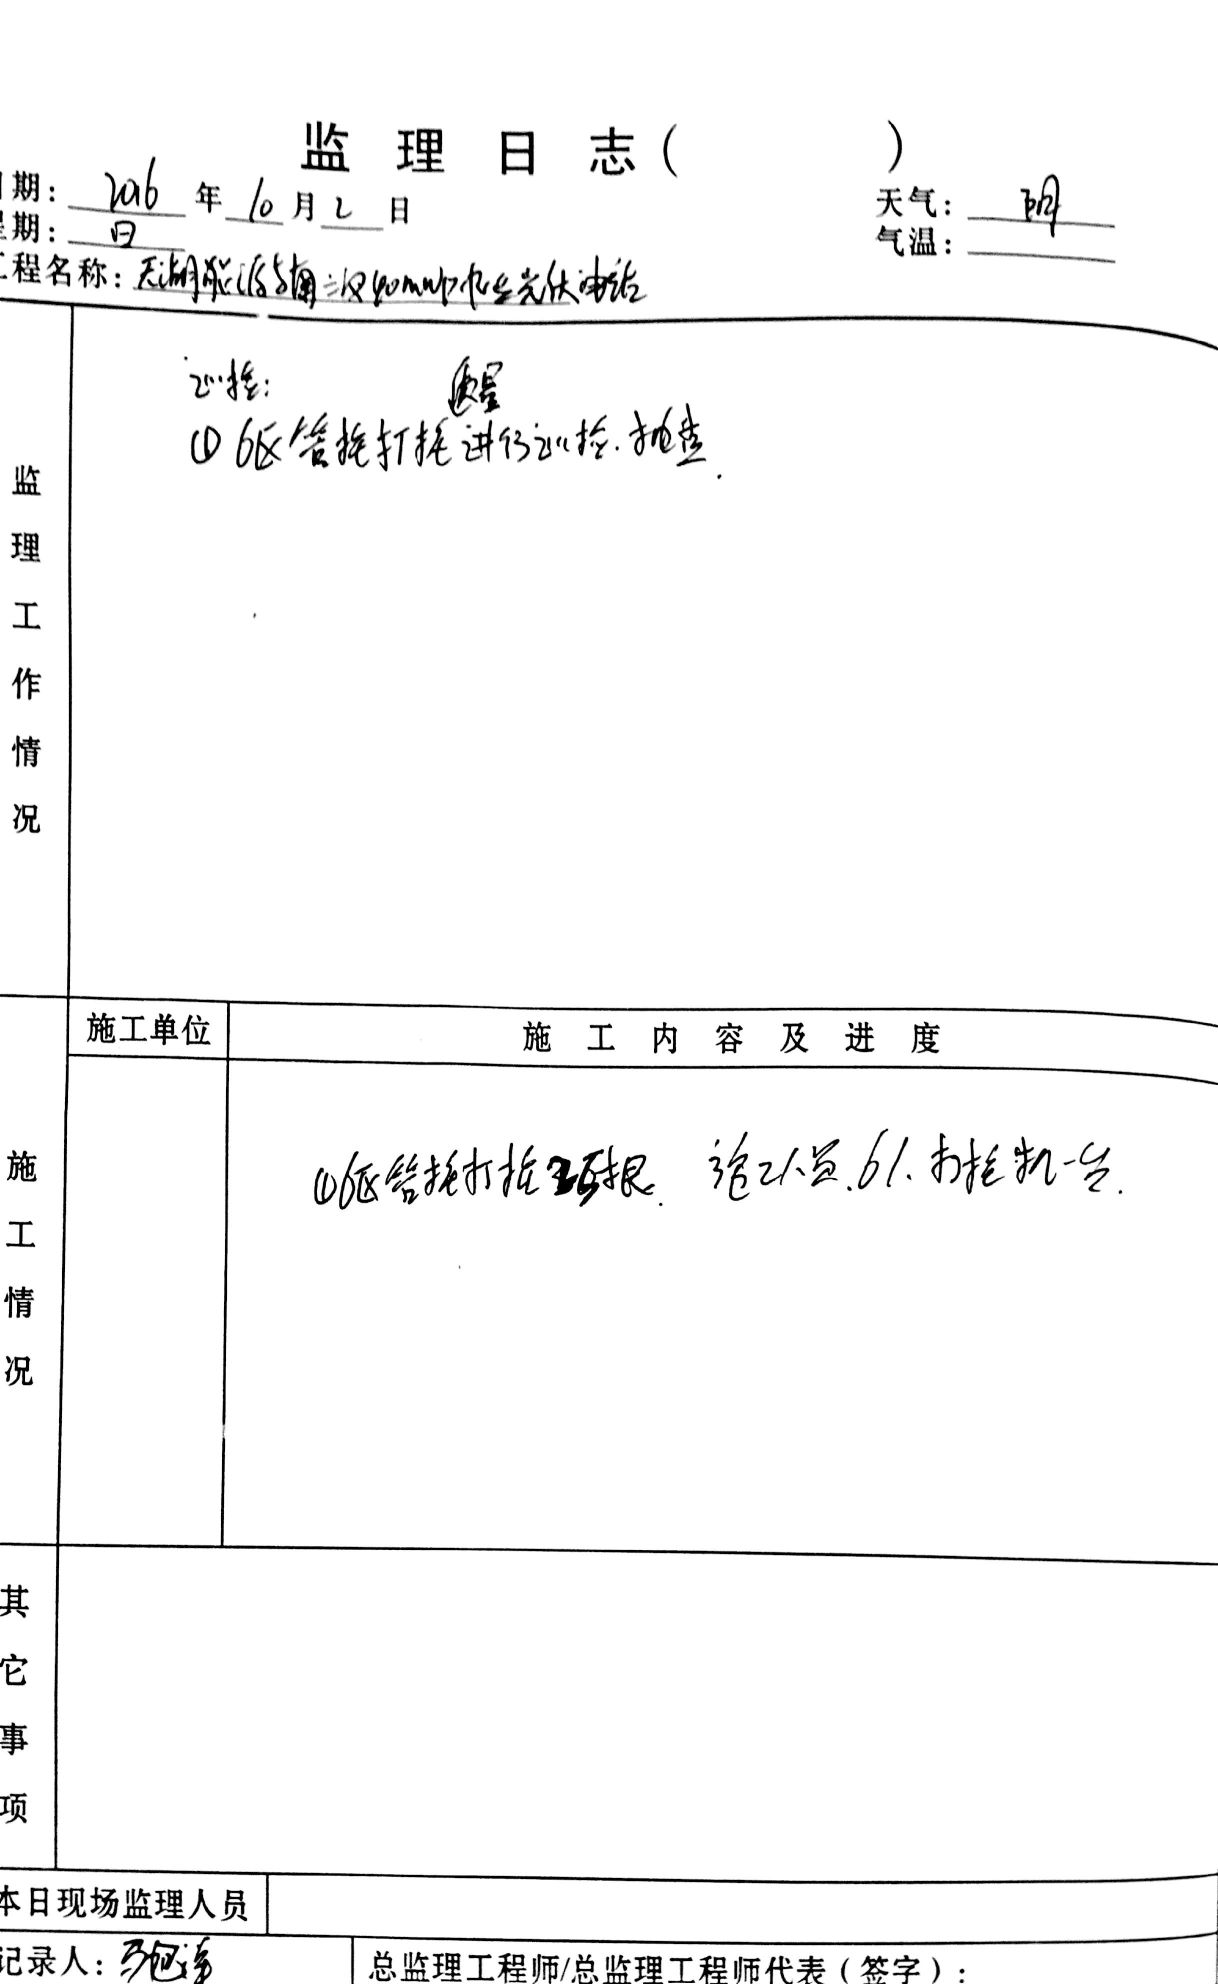 监理日志（ ）
期：2016年10月2日 天气：晴
期：日 气温：
工程名称：天湖能源 二次40mwp农业光伏电站
巡检：
质量
①6区管桩打桩进行巡检.抽查.
监理工作情况
施工单位 施工内容及进度
①6区管桩打桩 根. 施工人员.6人.打桩机一台.
施工情况
其它事项
本日现场监理人员
记录人：
总监理工程师/总监理工程师代表（签字）：